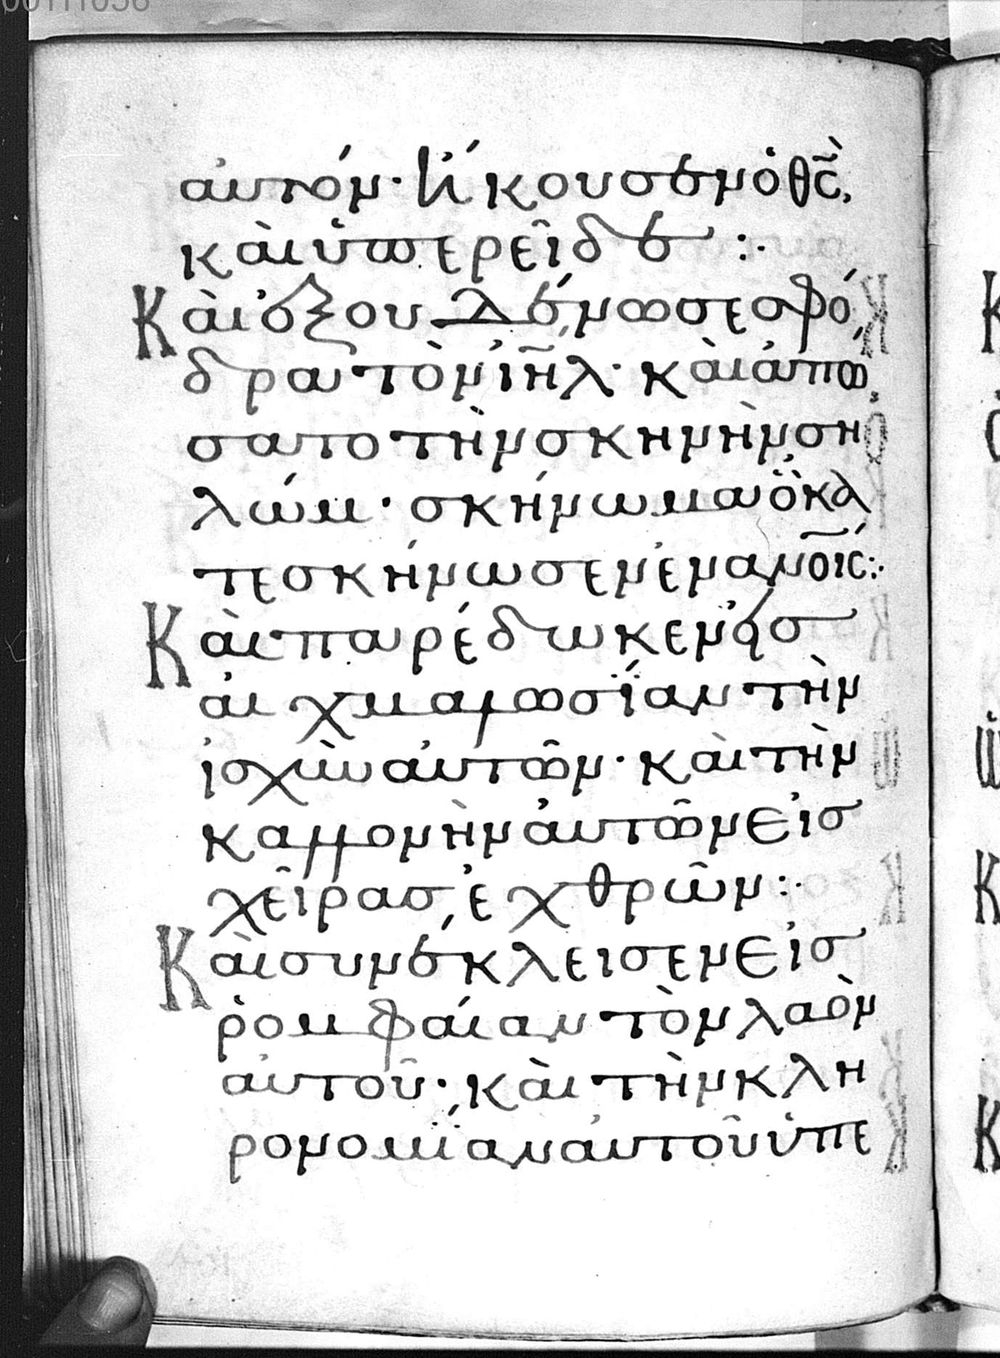 00111056
αὐτόν· Ἤκουσεν ὁ θς̅,
καὶ ὑπερεῖδεν :·
Καὶ ἐξουδένωσε σφό
δρα τὸν ιη̅λ· καὶ ἀπώ
σατο τὴν σκηνὴν ση
λώμ· σκήνωμα ὃ κα
τεσκήνωσεν ἐν ανοις̅ :·
Καὶ παρέδωκεν εἰσ
αἰχμαλωσΐαν τὴν
ἰσχὺν αὐτῶν· καὶ τὴν
καλλονὴν αὐτῶν εἰσ
χεῖρασ ἐχθρῶν :·
Καὶ συνέκλεισεν εἰσ
ῥομφαίαν τὸν λαὸν
αὐτοῦ· καὶ τὴν κλη
ρονομΐαν αὐτοῦ ὑπε